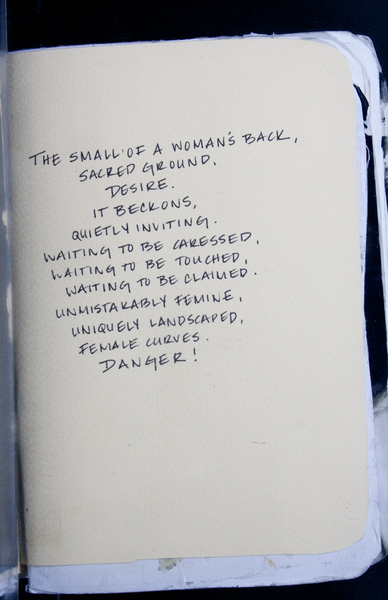 THE SMALL OF A WOMAN'S BACK,
SACRED GROUND,
DESIRE.
IT BECKONS,
QUIETLY INVITING.
WAITING TO BE CARESSED,
WAITING TO BE TOUCHED,
WAITING TO BE CLAIMED.
UNMISTAKABLY FEMINE,
UNIQUELY LANDSCAPED,
FEMALE CURVES.
DANGER!